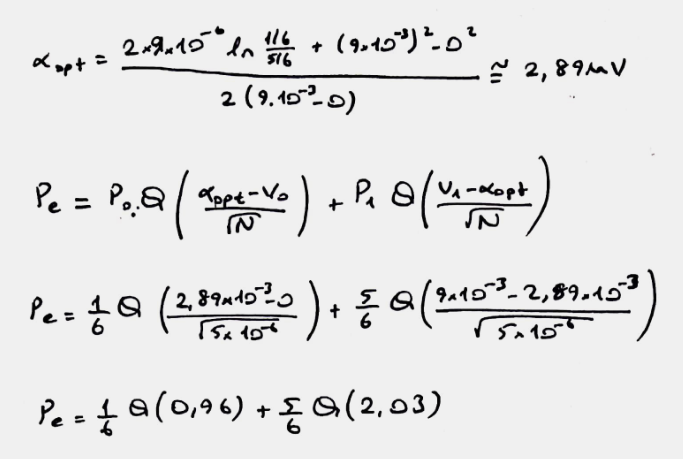 αopt = (2×9×10^-6 ln (1/6)/(5/6) + (9×10^-3)^2 - 0^2) / (2(9.10^-3 - 0)) ≅ 2,89mV
Pe = P0.Q((αopt - V0)/√N) + P1 Q((V1 - αopt)/√N)
Pe = 1/6 Q((2,89×10^-3 - 0)/√(5×10^-6)) + 5/6 Q((9×10^-3 - 2,89×10^-3)/√(5×10^-6))
Pe = 1/6 Q(0,96) + 5/6 Q(2,03)